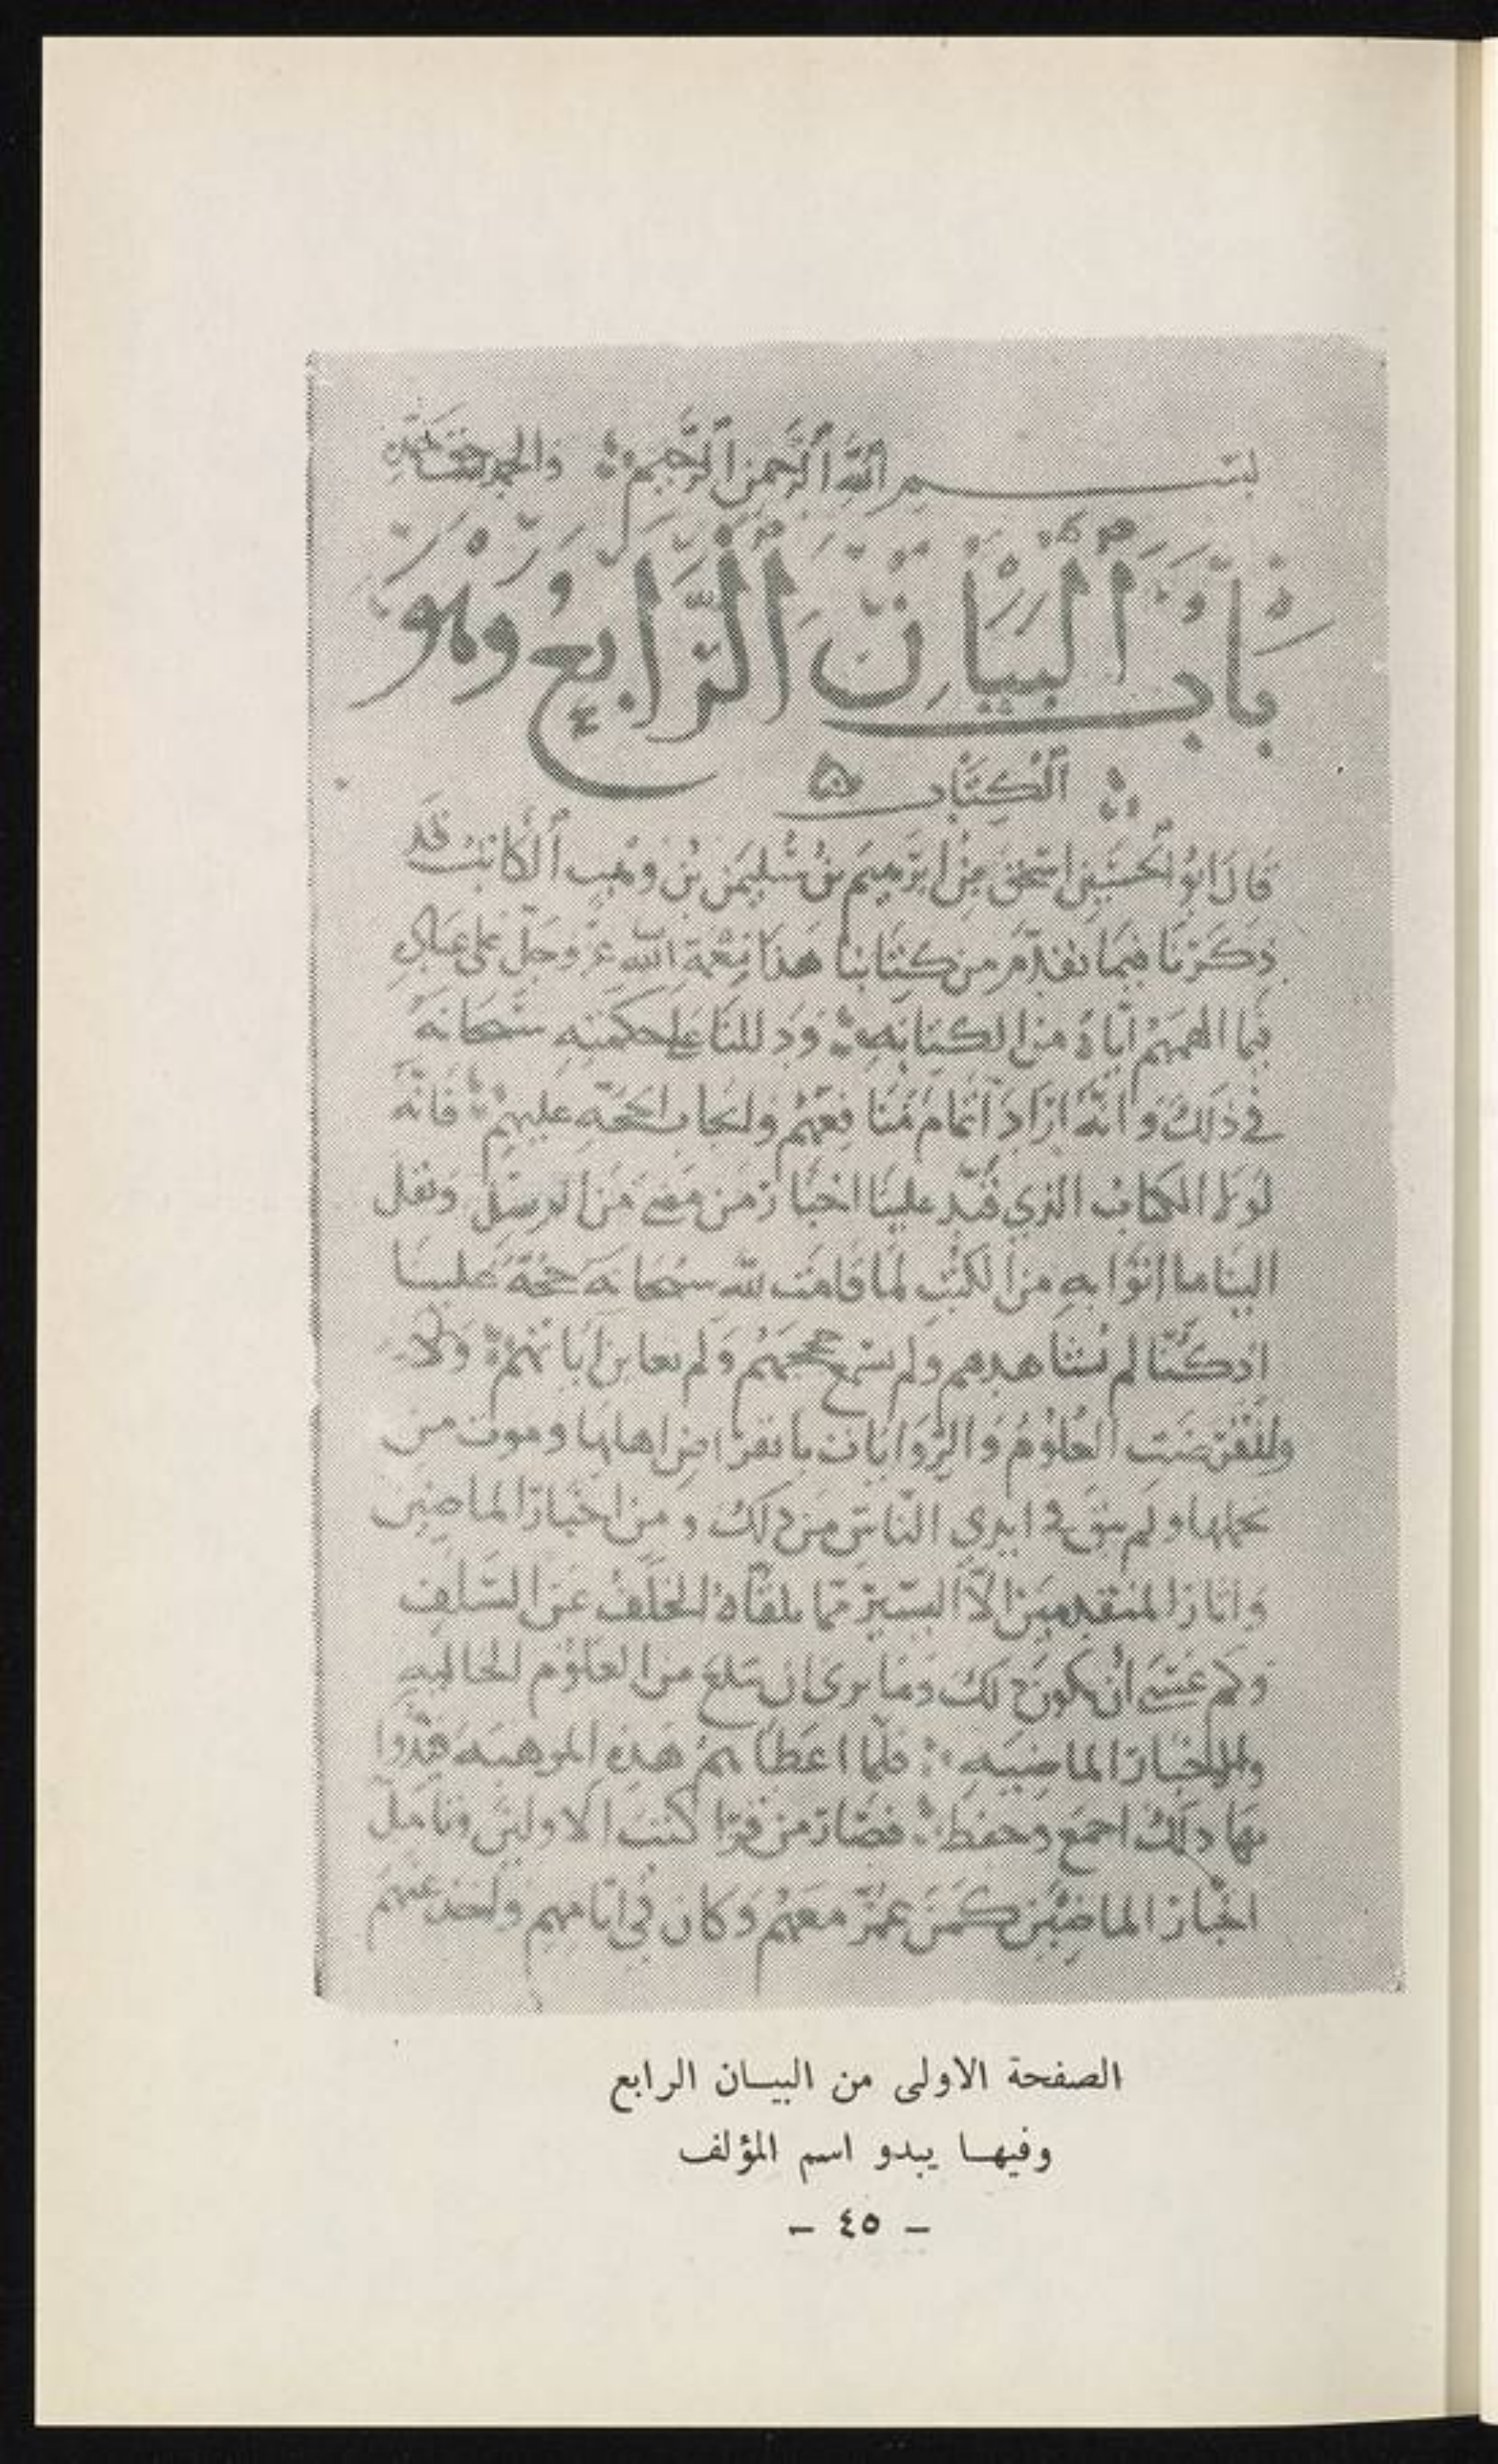 بسم الله الرحمن الرحيم والحمد لله
باب البيان الرابع وهو
الكتاب
قال ابو الحسين اسحق بن ابرهيم بن سليمن بن وهب الكاتب قد
ذكرنا فيما تقدم من كتابنا هذا نعمة الله عز وجل على عباده
فيما الهمهم اياه من الكتابه ودللنا على حكمته سبحانه
في ذلك وانه اراد اتمام منافعهم وايجاب الحجه عليهم فانه
لولا الكتاب الذي قيد علينا اخبار من مضى من الرسل ونقل
الينا ما اتوا به من الكتب لما قامت لله سبحانه حجة علينا
اذ كنا لم نشاهدهم ولم نسمع حججهم ولم نعاين اياتهم
العلوم والروايات بانقراض اهلها وموت من
تحملها ولم يبق في ايدي الناس من ذلك ومن اخبار الماضين
واثار المتقدمين الا اليسير مما يلقاه الخلف عن السلف
وكم عسى ان يكون ذلك وما ترى ان تبلغ من العلوم الخاليه
والاخبار الماضيه فلما اعطاهم هذه الموهبه قيدوا
بها ذلك اجمع وحفظ فصار من قرا كتب الاولين وتامل
اخبار الماضين كمن عمر معهم وكان في ايامهم واخذ عنهم
الصفحة الاولى من البيان الرابع
وفيها يبدو اسم المؤلف
- ٤٥ -